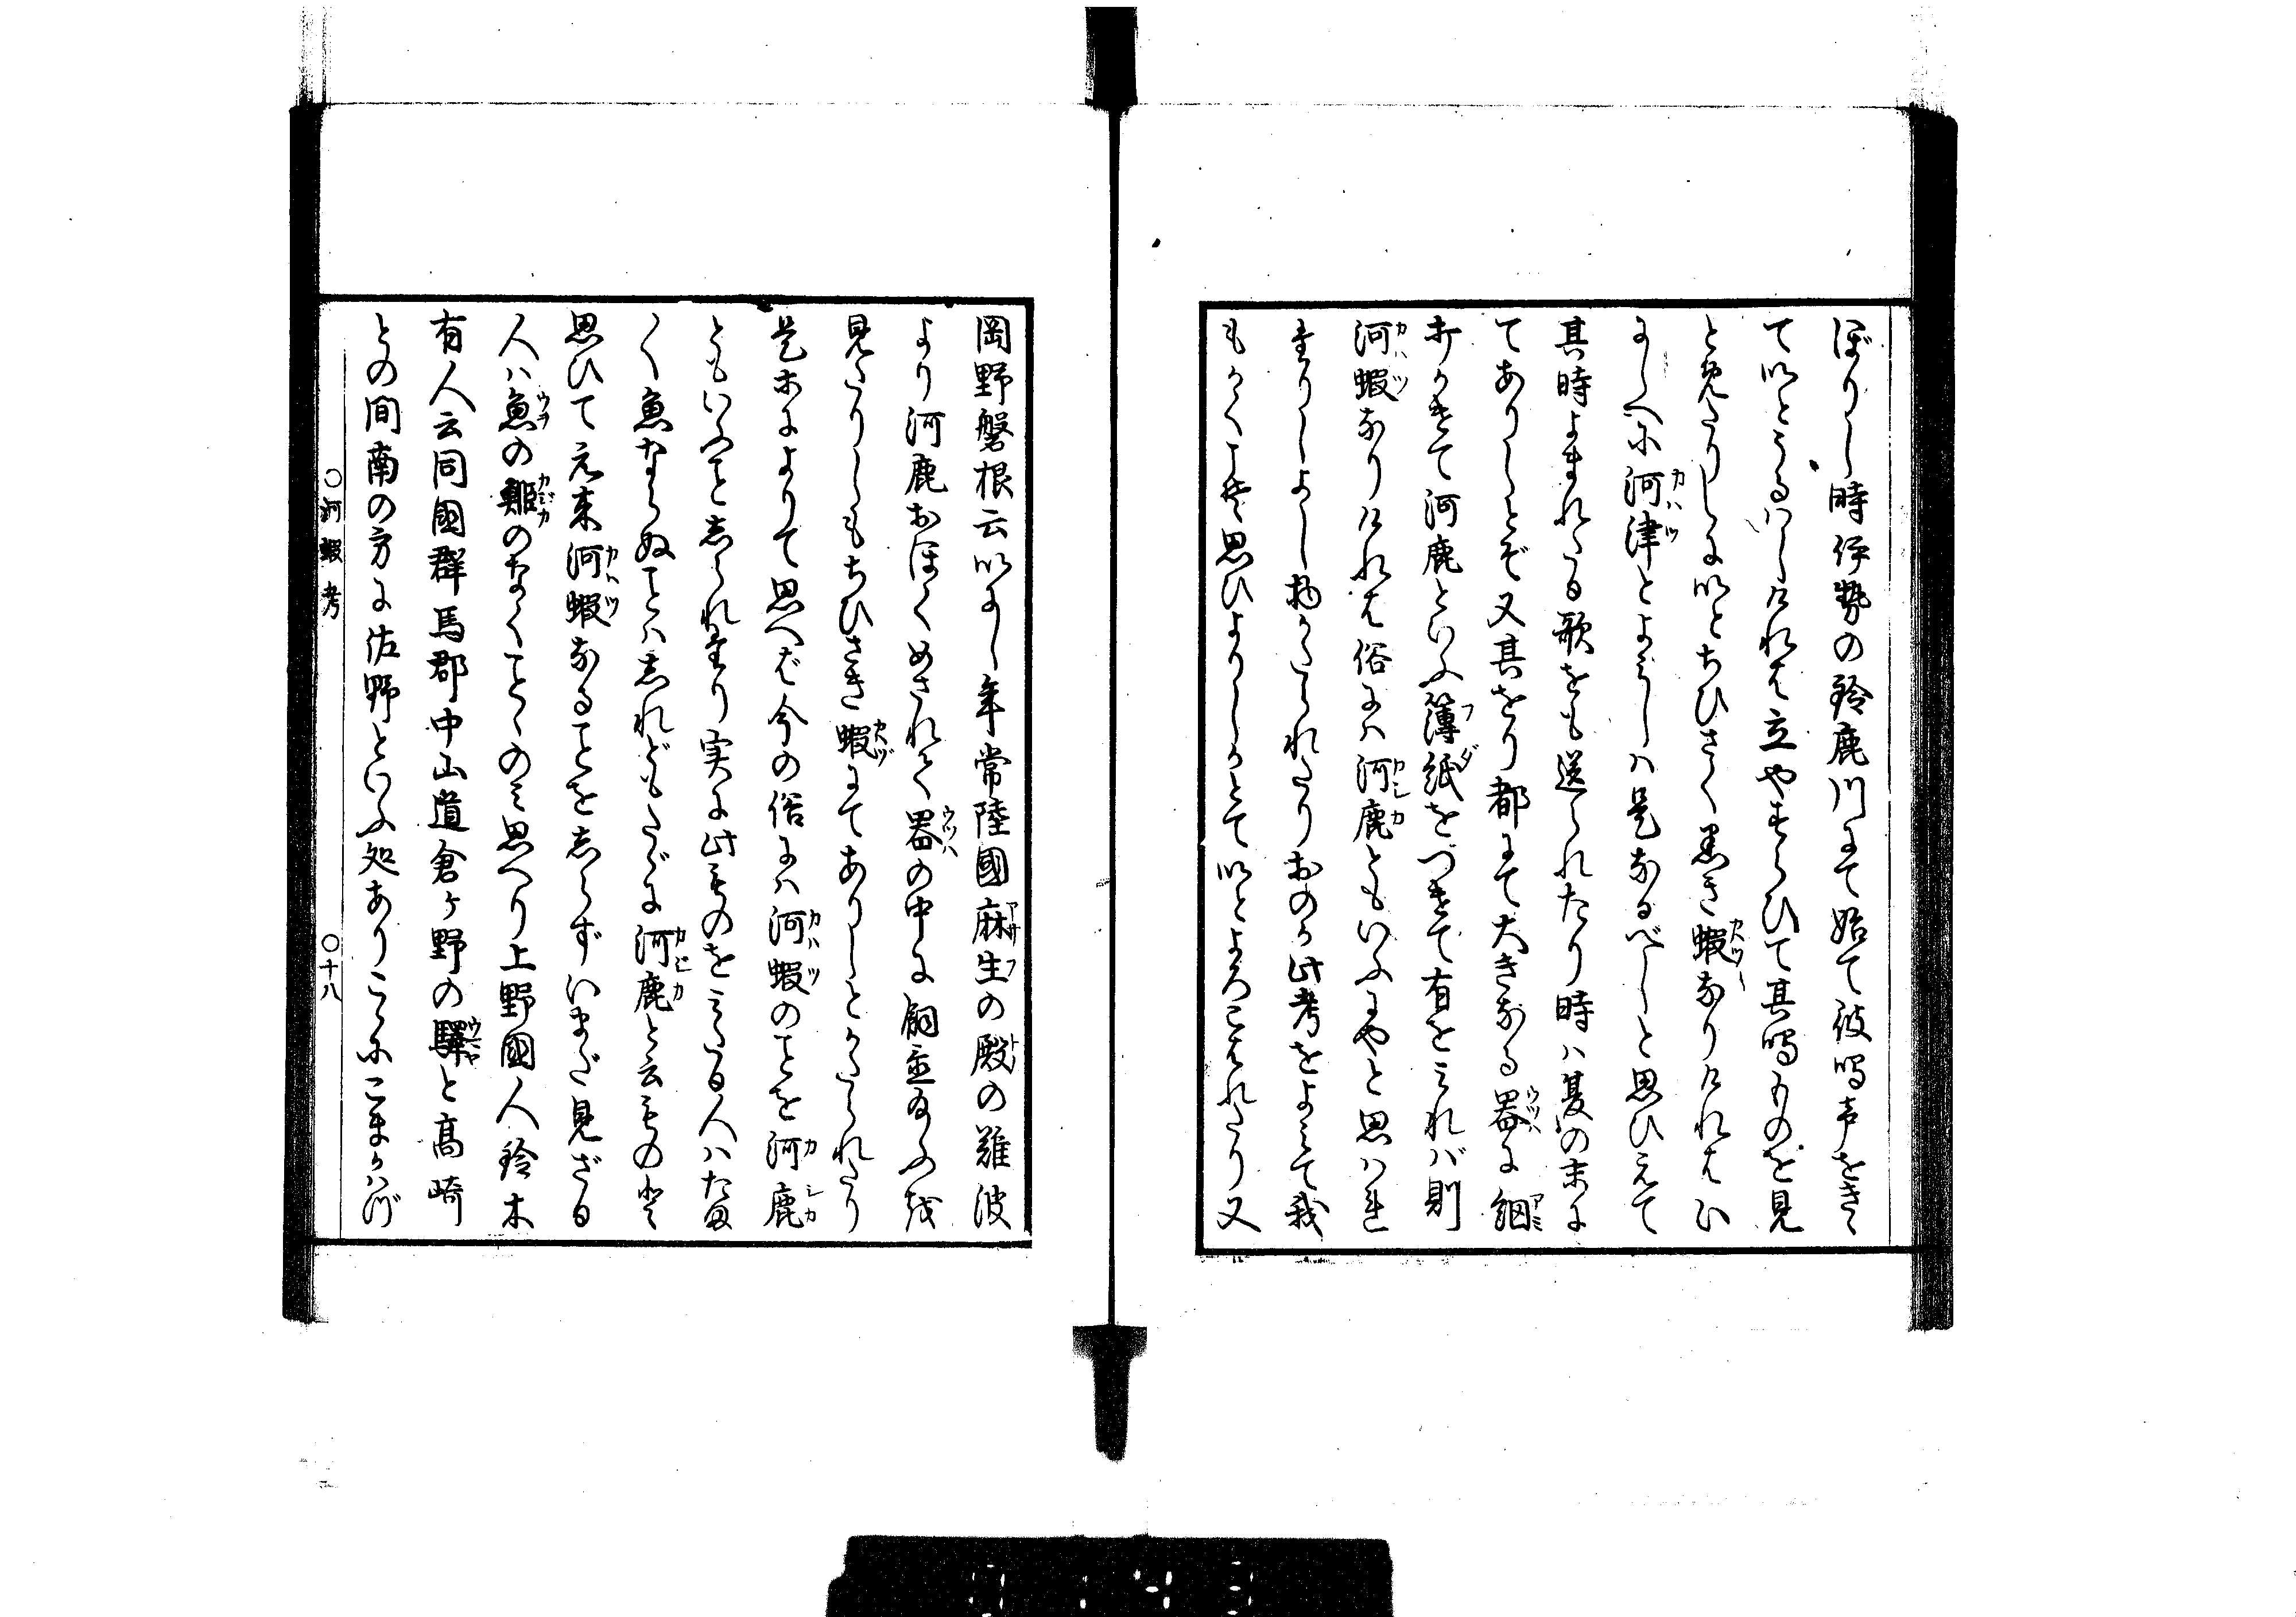 ぼりし時伊勢の鈴鹿川にて始て彼鳴声をきゝ
ていとうるはしけれは立やすらひて其鳴ものを見
とめたりしにいとちひさく黒き蝦なりけれはい
にしへに河津とよみしハ是なるべしと思ひえて
其時よまれたる歌をも送られたり時ハ夏の末に
てありしとぞ又其をり都にて大きなる器に網
打かけて河鹿といふ簿紙をつけて有をみれバ則
河蝦なりけれは俗にハ河鹿ともいふにやと思ハれ
けりしよし物かたられたりおのか此考をよみて我
もかくこそ思ひよりしかとていとよろこはれたり又
岡野磐根云いにし年常陸國麻生の殿の難波
より河鹿おほくめされて器の中に飼並給ふを
見たりしもちひさき蝦にてありしとかたられたり
是等によりて思へば今の俗にハ河蝦のことを河鹿
ともいふことしられけり実に此ものをみたる人ハたま
〱魚ならぬことハしれどもたゞに河鹿と云ものと
思ひて元来河蝦なることをしらずいまだ見ざる
人ハ魚の鰍のなくことゝのミ思へり上野國人鈴木
有人云同國群馬郡中山道倉ヶ野の驛と高崎
との間南の方に佐野といふ処ありこゝにこまかハづ
○河蝦考
○十八